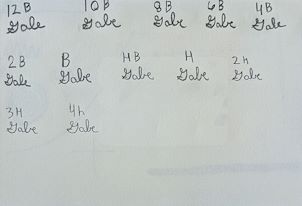 12B 10B 8B 6B 4B
Gabe Gabe Gabe Gabe Gabe
2B B HB H 2H
Gabe Gabe Gabe Gabe Gabe
3H 4h
Gabe Gabe